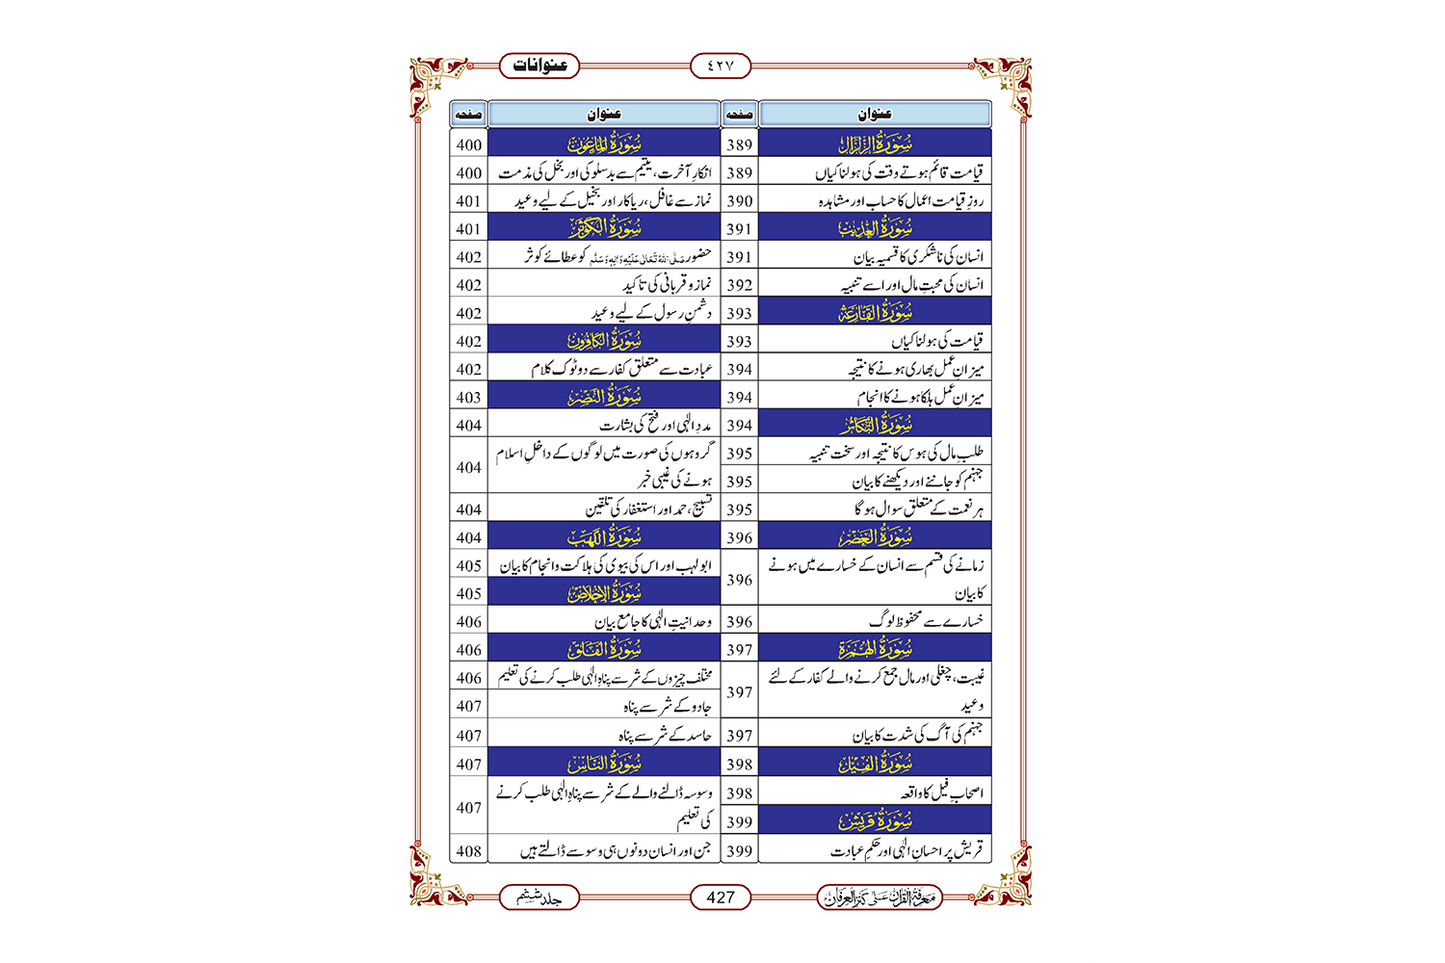 عنوانات
٤٢٧
عنوان
صفحہ
سُوْرَۃُ الزِّلْزَال
389
قیامت قائم ہوتے وقت کی ہولناکیاں
389
روزِ قیامت اعمال کا حساب اور مشاہدہ
390
سُوْرَۃُ الْعٰدِیٰت
391
انسان کی ناشکری کا قسمیہ بیان
391
انسان کی محبتِ مال اور اسے تنبیہ
392
سُوْرَۃُ الْقَارِعَۃ
393
قیامت کی ہولناکیاں
393
میزانِ عمل بھاری ہونے کا نتیجہ
394
میزانِ عمل ہلکا ہونے کا انجام
394
سُوْرَۃُ التَّکَاثُر
394
طلبِ مال کی ہوس کا نتیجہ اور سخت تنبیہ
395
جہنم کو جاننے اور دیکھنے کا بیان
395
ہر نعمت کے متعلق سوال ہوگا
395
سُوْرَۃُ الْعَصْر
396
زمانے کی قسم سے انسان کے خسارے میں ہونے
کا بیان
396
خسارے سے محفوظ لوگ
396
سُوْرَۃُ الْھُمَزَۃ
397
غیبت، چغلی اور مال جمع کرنے والے کفار کے لئے
وعید
397
جہنم کی آگ کی شدت کا بیان
397
سُوْرَۃُ الْفِیْل
398
اصحابِ فیل کا واقعہ
398
سُوْرَۃُ قُرَیْش
399
قریش پر احسانِ الٰہی اور حکمِ عبادت
399
عنوان
صفحہ
سُوْرَۃُ الْمَاعُوْن
400
انکارِ آخرت، یتیم سے بدسلوکی اور بخل کی مذمت
400
نماز سے غافل، ریاکار اور بخیل کے لیے وعید
401
سُوْرَۃُ الْکَوْثَر
401
حضور صَلَّی اللہُ تَعَالٰی عَلَیْہِ وَاٰلِہٖ وَسَلَّم کو عطائے کوثر
402
نماز و قربانی کی تاکید
402
دشمنِ رسول کے لیے وعید
402
سُوْرَۃُ الْکَافِرُوْن
402
عبادت سے متعلق کفار سے دوٹوک کلام
402
سُوْرَۃُ النَّصْر
403
مددِ الٰہی اور فتح کی بشارت
404
گروہوں کی صورت میں لوگوں کے داخلِ اسلام
ہونے کی غیبی خبر
404
تسبیح، حمد اور استغفار کی تلقین
404
سُوْرَۃُ اللَّھَب
404
ابولہب اور اس کی بیوی کی ہلاکت وانجام کا بیان
405
سُوْرَۃُ الْاِخْلَاص
405
وحدانیتِ الٰہی کا جامع بیان
406
سُوْرَۃُ الْفَلَق
406
مختلف چیزوں کے شر سے پناہِ الٰہی طلب کرنے کی تعلیم
406
جادو کے شر سے پناہ
407
حاسد کے شر سے پناہ
407
سُوْرَۃُ النَّاس
407
وسوسہ ڈالنے والے کے شر سے پناہِ الٰہی طلب کرنے
کی تعلیم
407
جن اور انسان دونوں ہی وسوسے ڈالتے ہیں
408
مَعْرِفَۃُ الْقُرْاٰن عَلٰی کَنْزِ الْعِرْفَان
427
جلد ششم